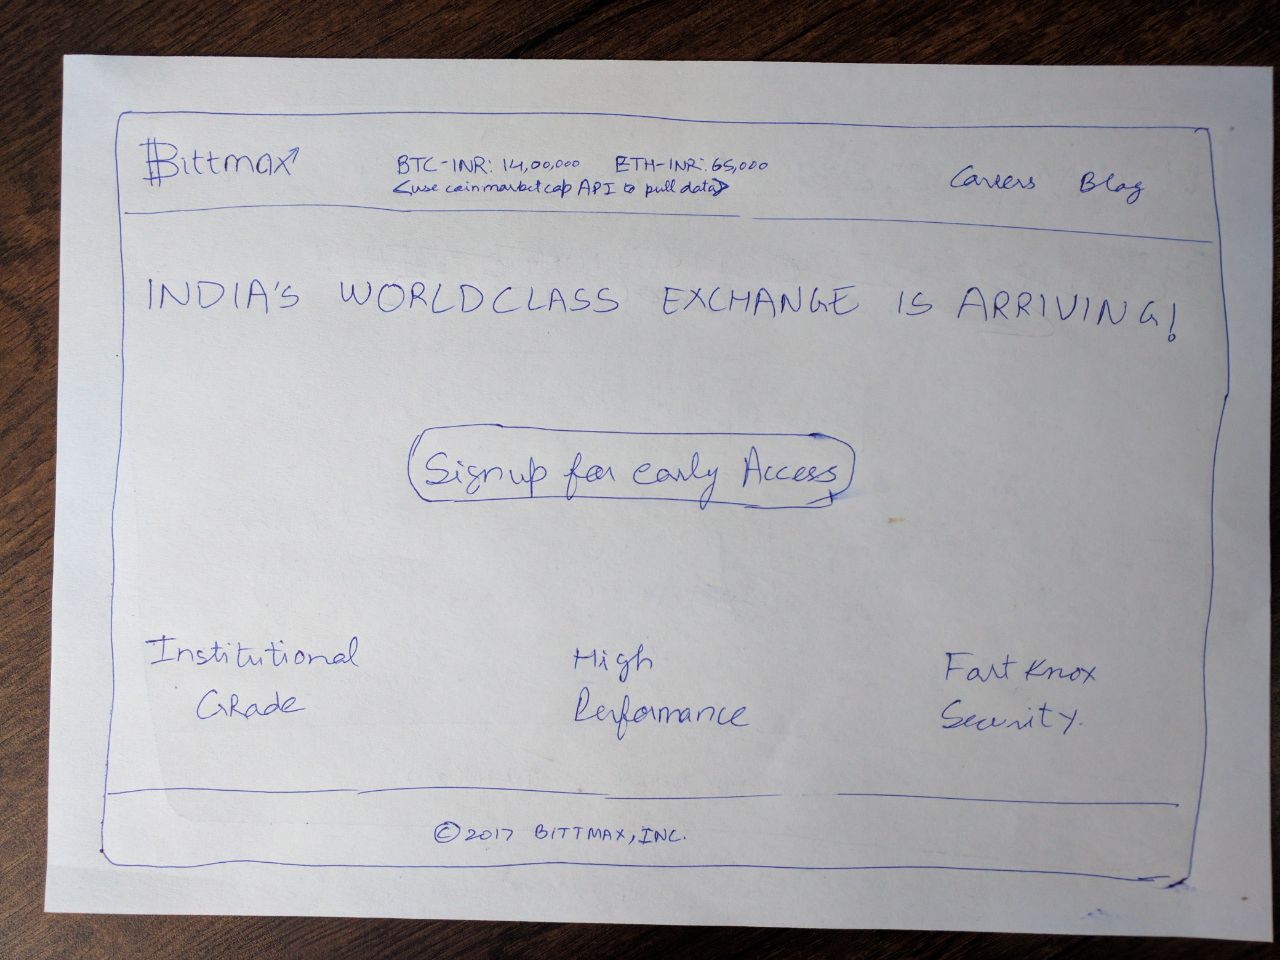 Bittmax
BTC-INR: 14,00,000 ETH-INR: 65,000
<use coinmarketcap API to pull data>
Careers Blog
INDIA'S WORLDCLASS EXCHANGE IS ARRIVING!
Signup for early Access
Institutional
GRade
High
Performance
Fort Knox
Security.
© 2017 BITTMAX, INC.